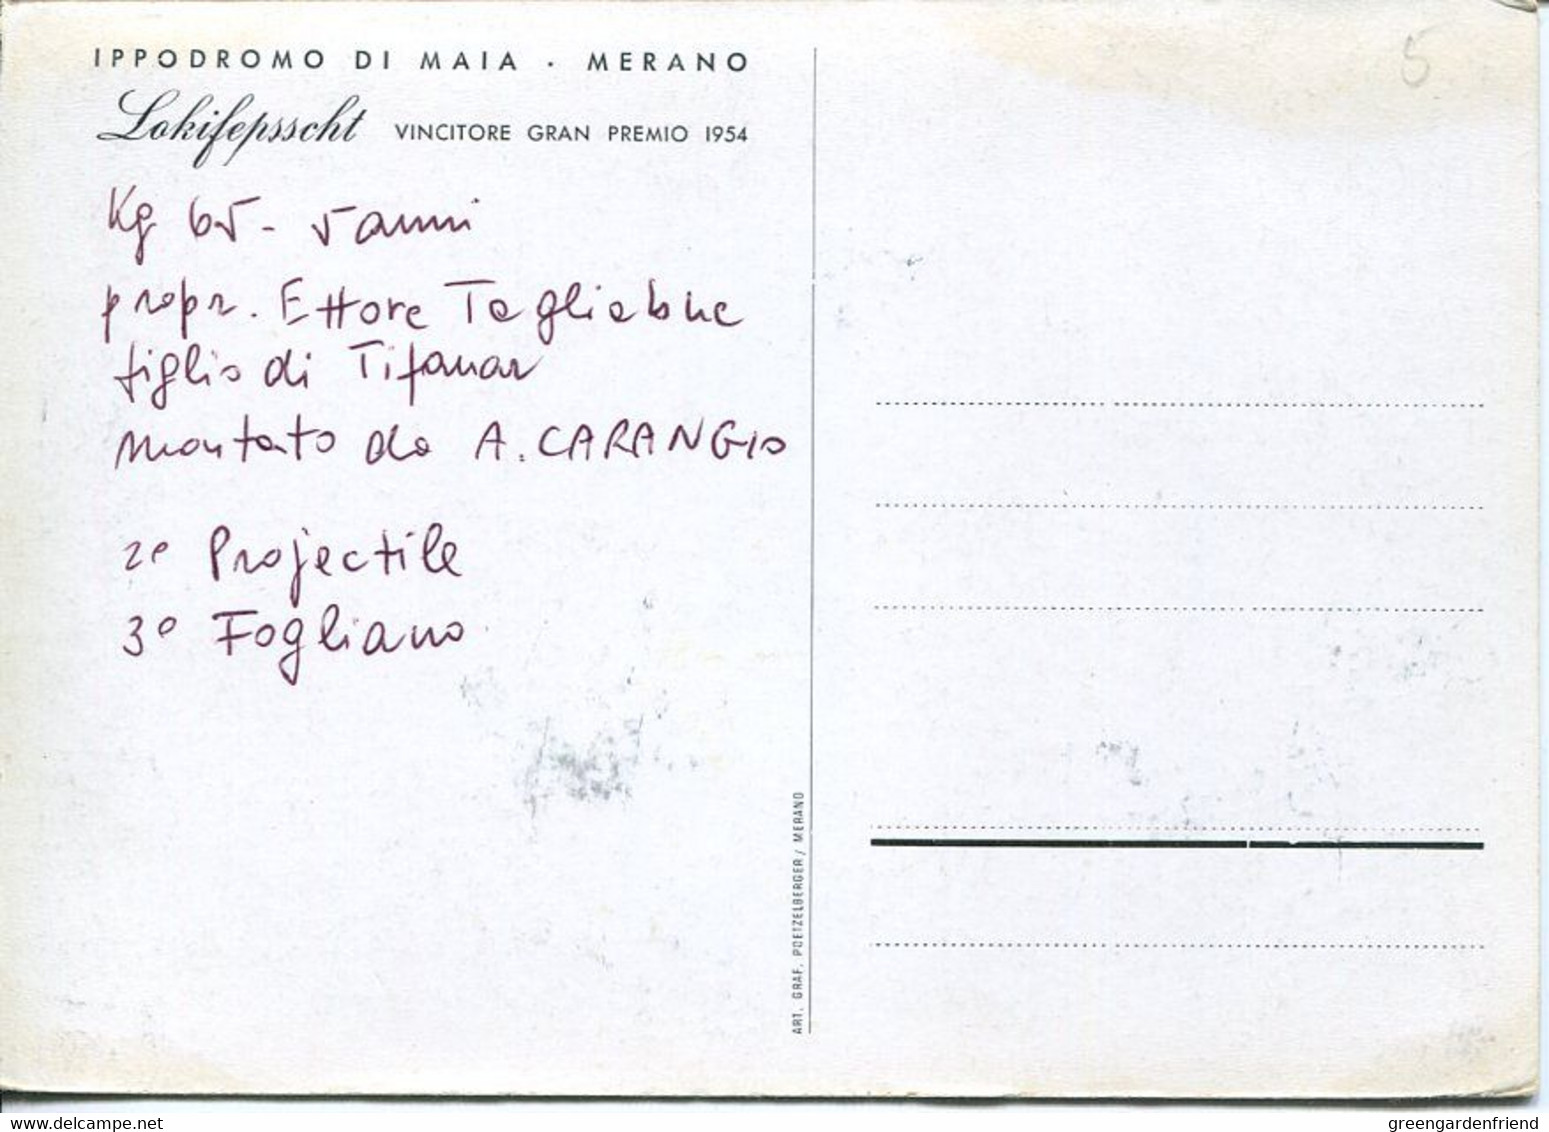 IPPODROMO DI MAIA · MERANO
Lokifepsscht VINCITORE GRAN PREMIO 1954
Kg 65 - 5 anni
propr. Ettore Tagliabue
figlio di Tifanar
montato da A. CARANGIO
2º Projectile
3º Fogliano
ART. GRAF. POETZELBERGER / MERANO
5
www.delcampe.net
greengardenfriend